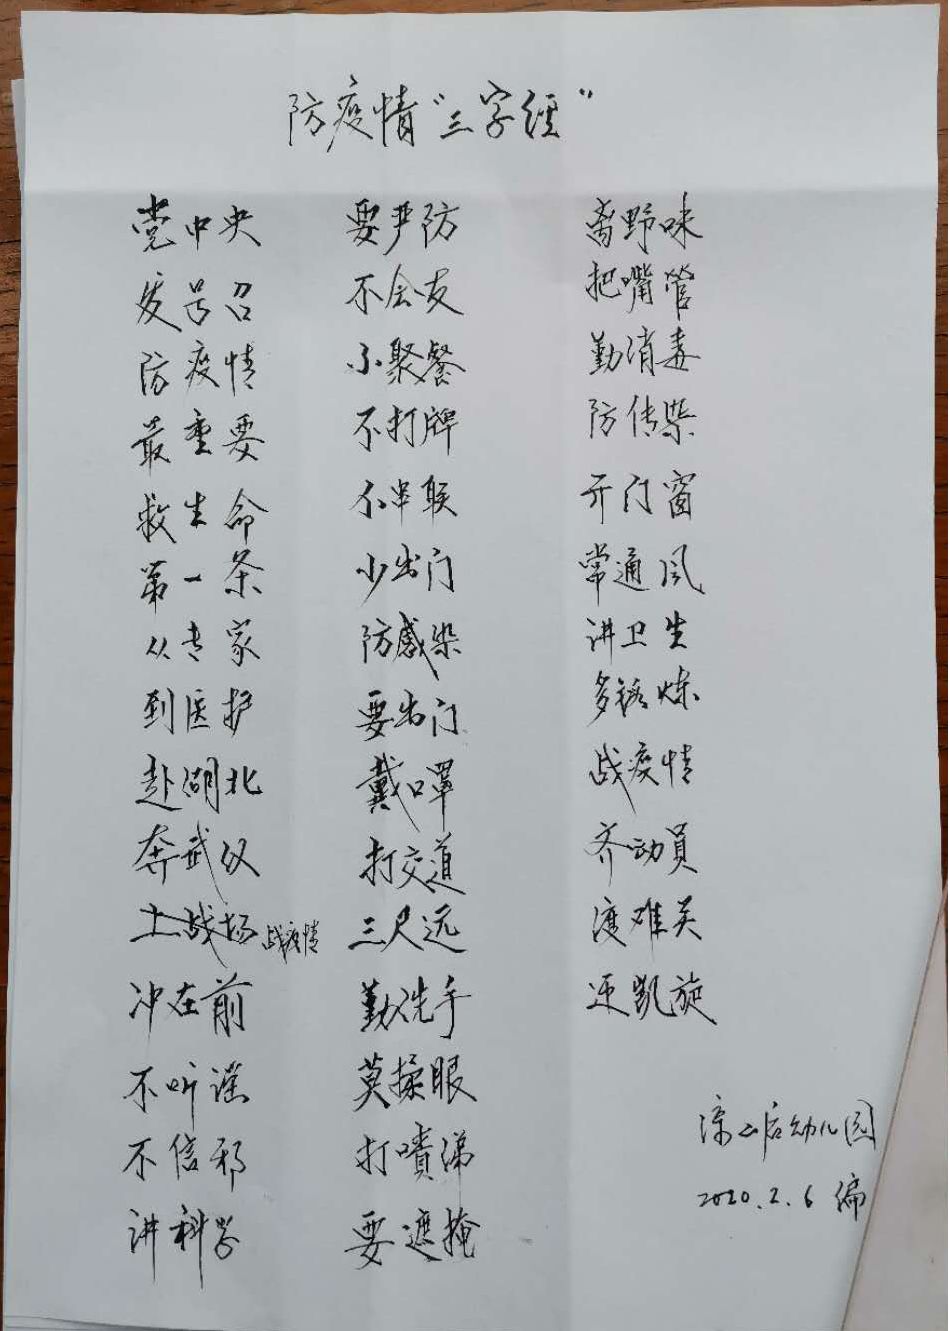 防疫情“三字經”
党中央
发号召
防疫情
最重要
救生命
第一条
从专家
到医护
赴湖北
奔武汉
上战场 战疫情
冲在前
不听谣
不信邪
讲科学
要严防
不会友
不聚餐
不打牌
不串联
少出门
防感染
要出门
戴口罩
打交道
三尺远
勤洗手
莫揉眼
打喷涕
要遮掩
离野味
把嘴管
勤消毒
防传染
开门窗
常通风
讲卫生
多锻炼
战疫情
齐动員
渡难关
迎凯旋
幼儿园
2020.2.6 编